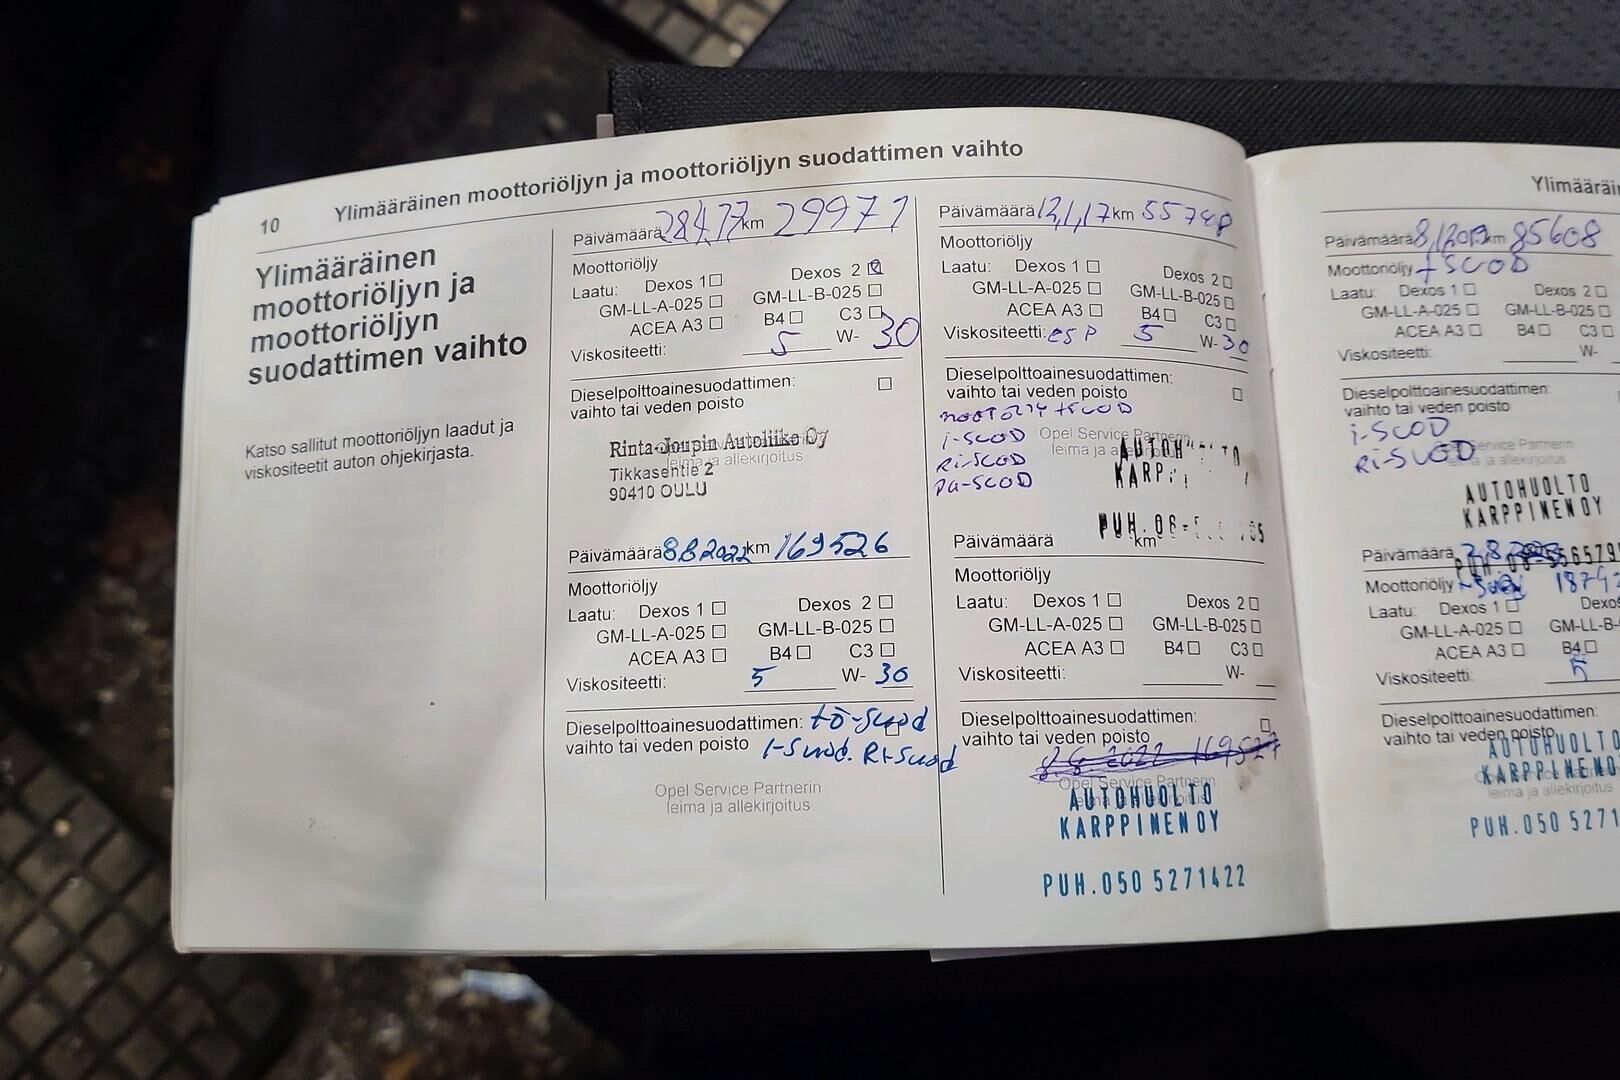 10 Ylimääräinen moottoriöljyn ja moottoriöljyn suodattimen vaihto
Ylimääräinen
moottoriöljyn ja
moottoriöljyn
suodattimen vaihto
Katso sallitut moottoriöljyn laadut ja
viskositeetit auton ohjekirjasta.
Päivämäärä km 29971
Moottoriöljy
Laatu: Dexos 1 Dexos 2
GM-LL-A-025 GM-LL-B-025
ACEA A3 B4 C3
Viskositeetti: 5 W- 30
Dieselpolttoainesuodattimen:
vaihto tai veden poisto
Rinta-Joupin Autoliike Oy
leima ja allekirjoitus
Tikkasentie 2
90410 OULU
Päivämäärä 8.8.2022 km 169526
Moottoriöljy
Laatu: Dexos 1 Dexos 2
GM-LL-A-025 GM-LL-B-025
ACEA A3 B4 C3
Viskositeetti: 5 W- 30
Dieselpolttoainesuodattimen: tö-suod
vaihto tai veden poisto I-suod. Ri-suod
Opel Service Partnerin
leima ja allekirjoitus
Päivämäärä 12,1,17 km 55748
Moottoriöljy
Laatu: Dexos 1 Dexos 2
GM-LL-A-025 GM-LL-B-025
ACEA A3 B4 C3
Viskositeetti: ESP 5 W- 30
Dieselpolttoainesuodattimen:
vaihto tai veden poisto
i-SUOD
Ri-SUOD
Pa-SUOD
Opel Service Partnerin
leima ja allekirjoitus
Päivämäärä km
Moottoriöljy
Laatu: Dexos 1 Dexos 2
GM-LL-A-025 GM-LL-B-025
ACEA A3 B4 C3
Viskositeetti: W-
Dieselpolttoainesuodattimen:
vaihto tai veden poisto
2022 169527
Opel Service Partnerin
AUTOHUOLTO
KARPPINEN OY
PUH.050 5271422
Ylimääräi
Päivämäärä km 85608
Moottoriöljy + SUOD
Laatu: Dexos 1 Dexos 2
GM-LL-A-025 GM-LL-B-025
ACEA A3 B4 C3
Viskositeetti: W-
Dieselpolttoainesuodattimen:
vaihto tai veden poisto
i-SUOD
Ri-SUOD
Service Partnerin
ja allekirjoitus
AUTOHUOLTO
KARPPINEN OY
Päivämäärä
Moottoriöljy
Laatu: Dexos 1 Dexos
GM-LL-A-025 GM-LL-B-
ACEA A3 B4
Viskositeetti: 5
Dieselpolttoainesuodattimen:
vaihto tai veden poisto
AUTOHUOLTO
KARPPINEN O
leima ja allekirjoitus
PUH.050 5271